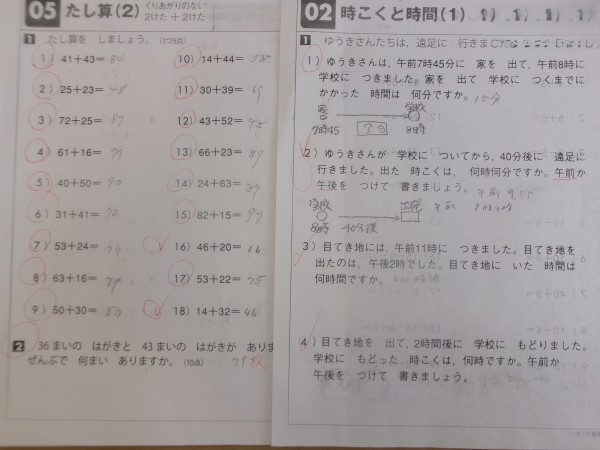 05 たし算(2) くりあがりのない
2けた＋2けた
1 たし算を しましょう。(1つ5点)
1) 41+43= 84
2) 25+23= 48
3) 72+25= 97
4) 61+16= 77
5) 40+50= 90
6) 31+41= 72
7) 53+24=
8) 63+16= 79
9) 50+30= 80
10) 14+44= 58
11) 30+39= 69
12) 43+52= 95
13) 66+23= 89
14) 24+63= 87
15) 82+15= 97
16) 46+20= 66
17) 53+22= 75
18) 14+32= 46
2 36まいの はがきと 43まいの はがきが ありま
ぜんぶで 何まい ありますか。(10点) 79枚
02 時こくと時間(1)
1 ゆうきさんたちは, 遠足に 行きま
1) ゆうきさんは, 午前7時45分に 家を 出て, 午前8時に
学校に つきました。家を 出て 学校に つくまでに
かかった 時間は 何分ですか。 15分
家 学校
7時45 ?分 8時
2) ゆうきさんが 学校に ついてから, 40分後に 遠足に
行きました。出た 時こくは, 何時何分ですか。午前か
午後を つけて 書きましょう。
学校 出発 午前
8時 40分後
3) 目てき地には, 午前11時に つきました。目てき地を
出たのは, 午後2時でした。目てき地に いた 時間は
何時間ですか。
4) 目てき地を 出て, 2時間後に 学校に もどりました。
学校に もどった 時こくは, 何時ですか。午前か
午後を つけて 書きましょう。